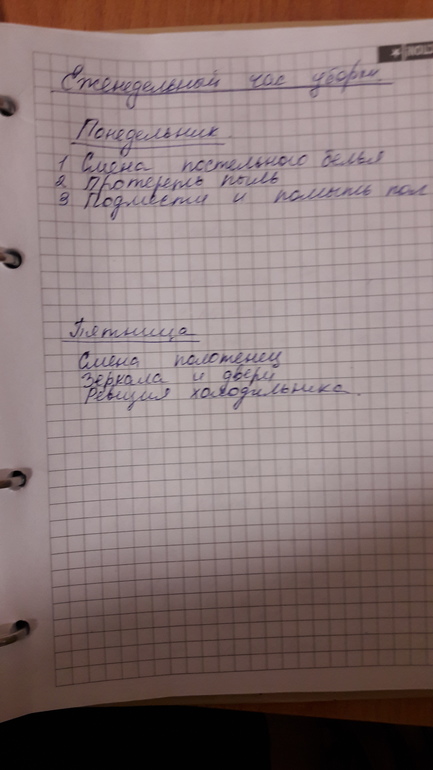 Еженедельный час уборки.
Понедельник.
1 Смена постельного белья
2 Протереть пыль
3 Подмести и помыть пол
Пятница
Смена полотенец
Зеркала и двери
Ревизия холодильника.